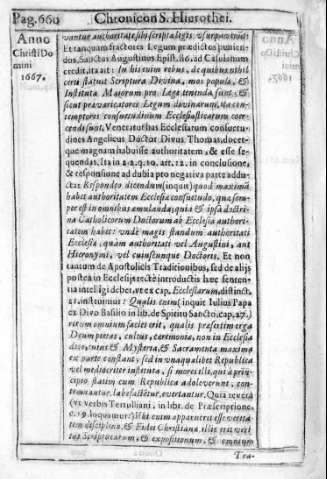 Pag. 660
Chronicon S. Hierothei.
Anno
Christi Do
mini
1667.
vantur authoritate sibi scripta legis usurpaverint:
Et tanquam fractores Legum prædictos punien-
dos, Sanctus Augustinus Epist. 86. ad Casulanum
credit, ita ait: In his enim rebus, de quibus nihil
certi statuit Scriptura Divina, mos populi, &
Instituta Maiorum pro Lege tenenda sunt: &
sicut prævaricatores Legum divinarum, ita con-
temptores consuetudinum Ecclesiasticarum coer-
cendi sunt. Veneraturus Ecclesiarum consuetu-
dines Angelicus Doctor Divus Thomas, docet
quæ magnam habuisse authoritatem, & esse se-
quendas. Ita in 2.2. q. 10. art. 12. in conclusione,
& responsione ad dubia pro negativa parte adduc-
ta: Respondeo dicendum (inquit) quod maximã
habet authoritatem Ecclesiæ consuetudo, quæ sem-
per est in omnibus æmulanda; quia & ipsa doctri-
na Catholicorum Doctorum ab Ecclesia authori-
tatem habet: unde magis standum authoritati
Ecclesiæ, quàm authoritati vel Augustini, aut
Hieronymi, vel cuiuscunque Doctoris. Et non
tantum de Apostolicis Traditionibus, sed de alijs
postea in Ecclesijs rectè introductis hæc senten-
tia intelligi debet, ut ex cap. Ecclesiarum, distinct.
instruimur: Qualis enim (inquit Iulius Papa
ex Divo Basilio in lib. de Spiritu Sancto, cap. 27.)
rerum omnium facies erit, qualis præsertim erga
Deum pietas, cultus, ceremonia, non in Ecclesia
& Mysteria, & Sacramenta maxima
ex parte constant; sed in unaqualibet Republica
vel mediocriter instituta, si mores illi, qui à prin-
cipio statim cum Republica adoleverunt, con-
temnantur, labefactetur, evertantur. Quia revera
(ut verbis Tertulliani, in libr. de Præscriptione,
c. 19. loquimur) Ubi enim apparuerit esse verita-
tem disciplinæ, & Fidei Christianæ, illic erit veri-
tas Scripturarum, & expositionum, & omnium
Tra-